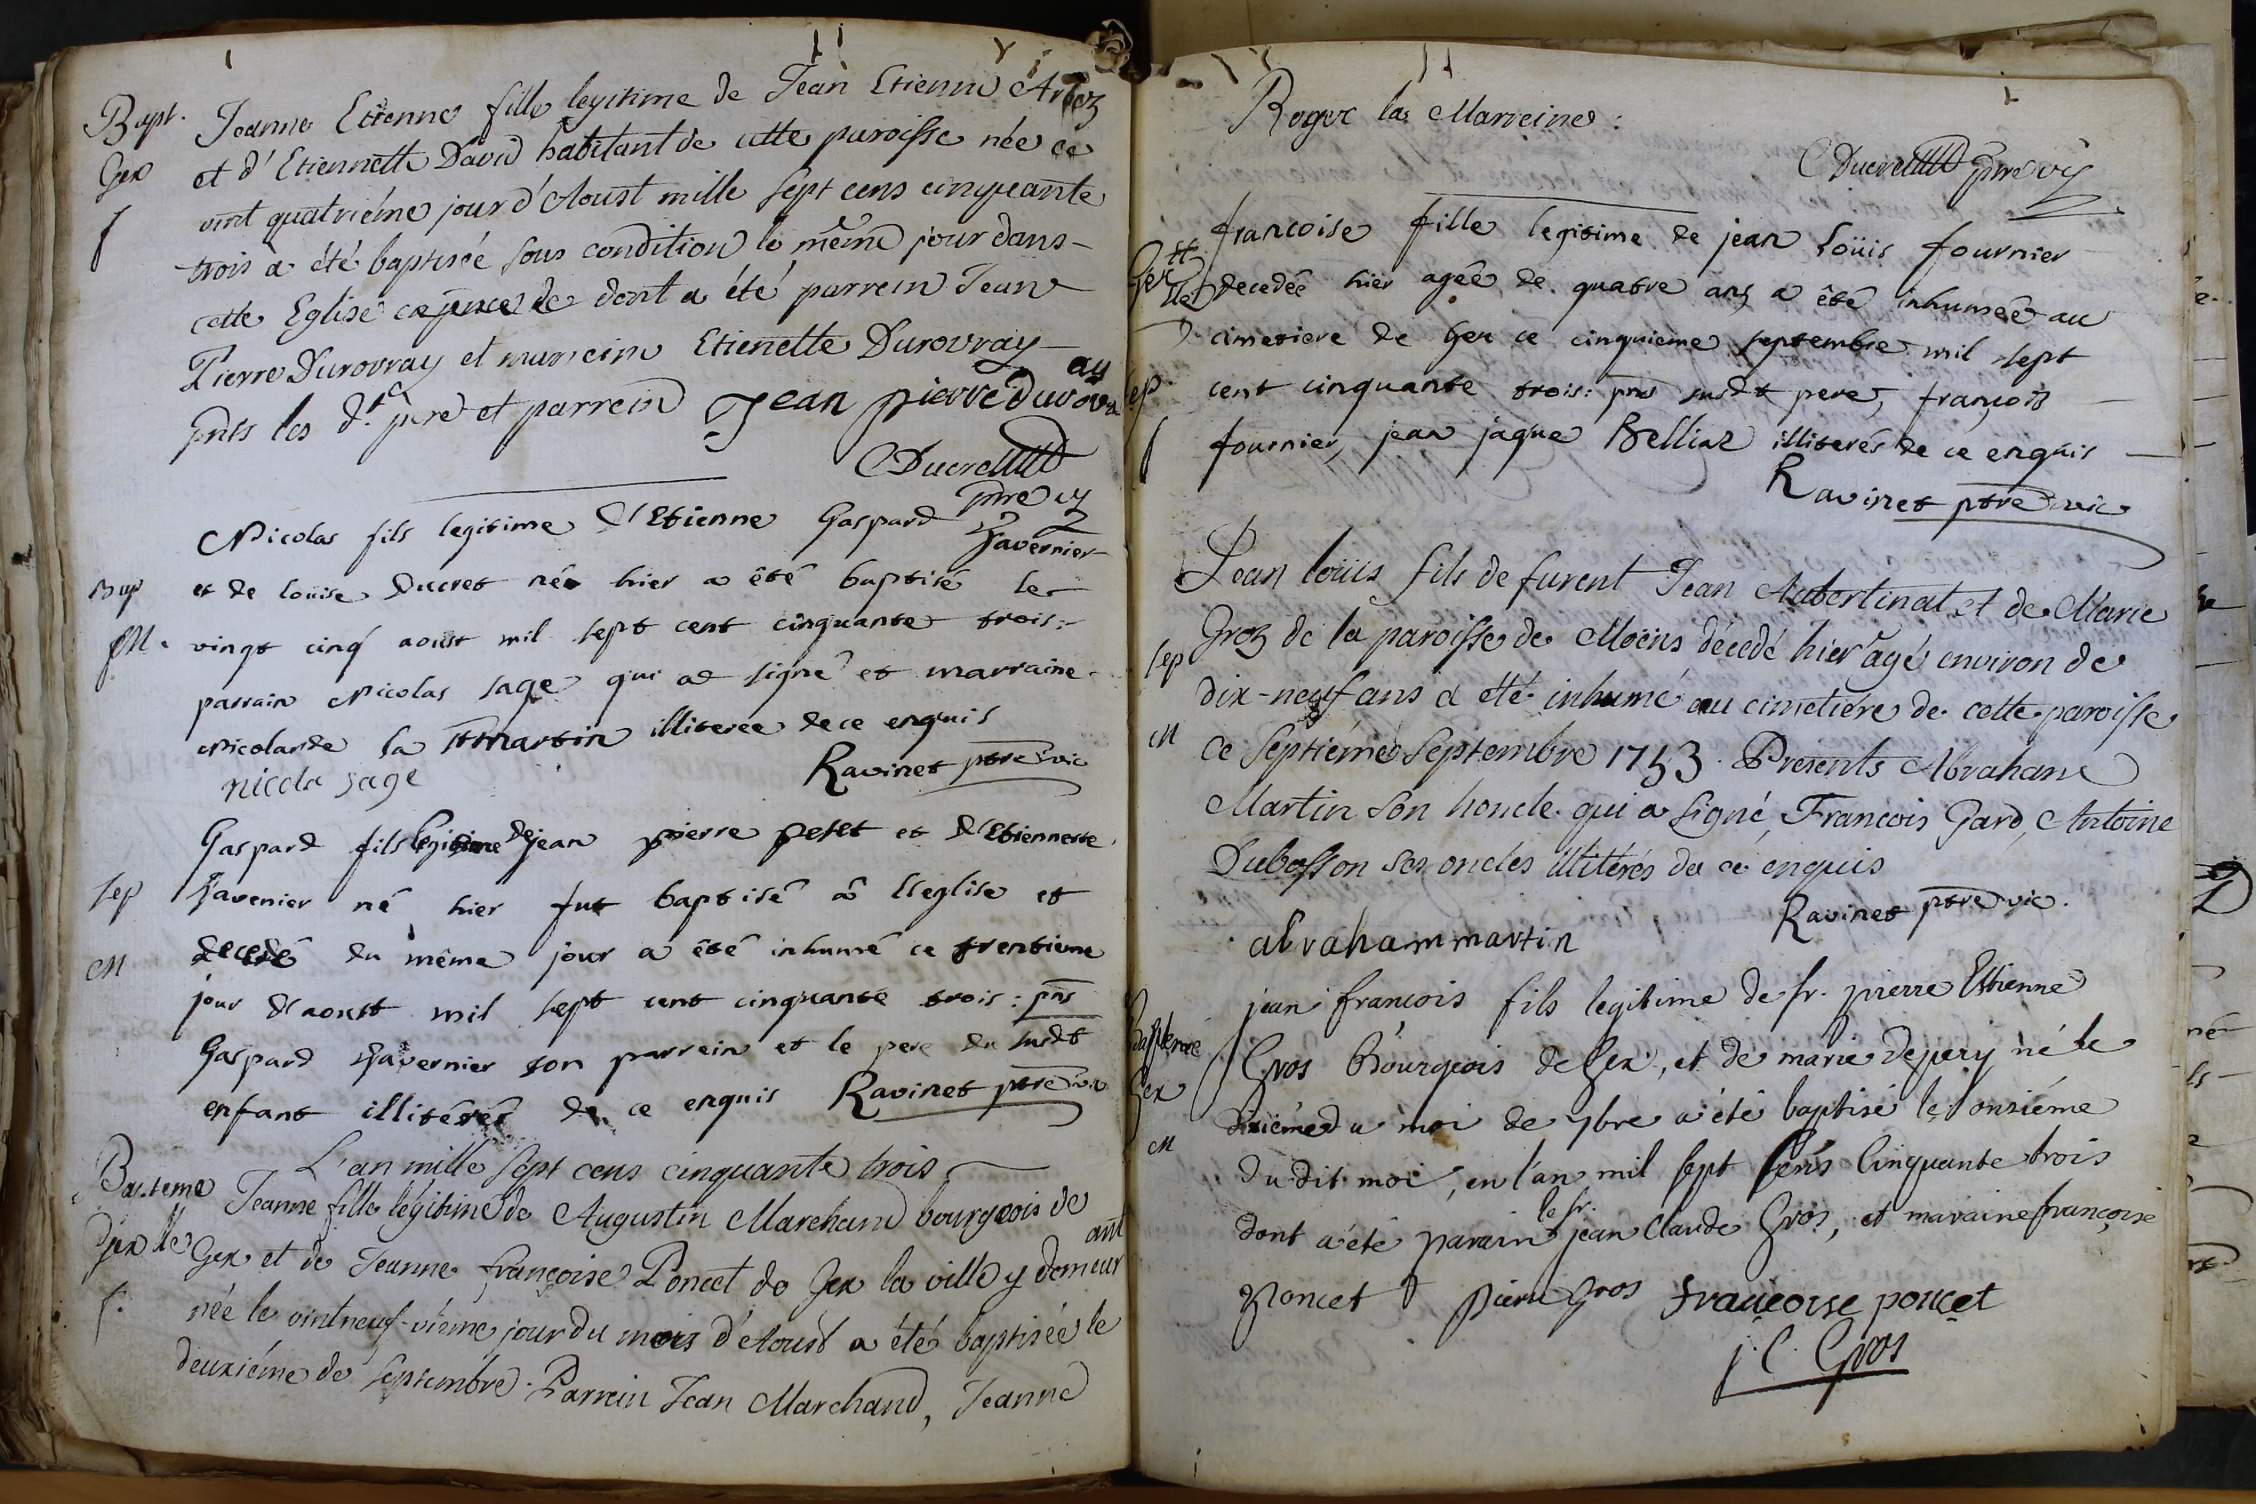 Bapt. Jeanne Etienne fille legitime de Jean Etienne Arbez
Gex et d'Etiennette David habitant de cette paroisse née ce
f vint quatriéme jour d'Aoust mille sept cens cinquante
trois a été baptisée sous condition le même jour dans
cette Eglise dont a été parrein Jean
Pierre Durovray et marreine Etienette Durovray
pnts les dt. pere et parrein Jean pierre Durovray
Ducret
ptre vic
Nicolas fils legitime d'Etienne Gaspard Tavernier
Bap et de loüise Ducret né hier a êté baptisé le
M. vingt cinq aoust mil sept cent cinquante trois:
parrain Nicolas sage qui a signé et marraine
Nicolande la martin illiterée de ce enquis
nicola sage Ravinet ptre vic
Gaspard fils legitime de jean pierre petet et d'Etiennette
sep Tavenier né hier fut baptisé a l'eglise et
M decedé du même jour a êté inhumé ce trentieme
jour d'aoust mil sept cent cinquante trois: pns
Gaspard Tavernier son parrein et le pere du susdt
enfant illitérés de ce enquis Ravinet ptre vic
L'an mille sept cens cinquante trois
Bapteme Jeanne fille légitime de Augustin Marchand bourgeois de
Gex lle Gex et de Jeanne françoise Poncet de Gex la ville y demeurant
f. née le vintneuf-viéme jour du mois d'Aoust a été baptisée le
deuxiéme de septembre. Parrein Jean Marchand, Jeanne
Roger la Marreine:
Ducret ptre vic
francoise fille legitime de jean loüis fournier
Gex lle decedée hier agée de quatre ans a êté inhumée au
cimetiere de Gex ce cinquieme septembre mil sept
sep cent cinquante trois: pns susdt pere, françois
f fournier, jean jaque Belliaz illiterés de ce enquis
Ravinet ptre vic
Jean loüis fils de furent Jean Aubertinat et de Marie
Groz de la paroisse de Moëns décedé hier agé environ de
sep dix-neuf ans a été inhumé au cimetiére de cette paroisse
M ce septiéme septembre 1753. Presents Abraham
Martin son honcle qui a signé, Francois Gard, Antoine
Dubosson ses oncles illitérés de ce enquis
Ravinet ptre vic.
abraham martin
jean francois fils legitime de sr. pierre Estienne
Bapteme Gros Bourgeois de Gex, et de marie Depery né le
Gex dixiéme du moi de 7bre a été baptisé le onziéme
M du dit moi, en l'an mil sept Cens Cinquante trois
dont a été parain le sr. jean Claude Gros, et maraine françoise
Poncet pierre Gros francoise poncet
j. C. Gros